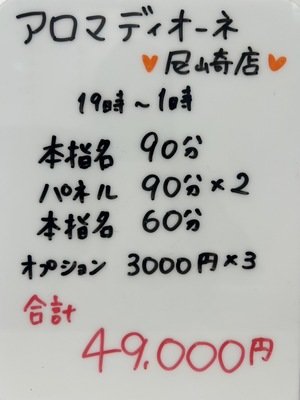 アロマディオーネ
♥尼崎店♥
19時～1時
本指名 90分
パネル 90分×2
本指名 60分
オプション 3000円×3
合計
49.000円